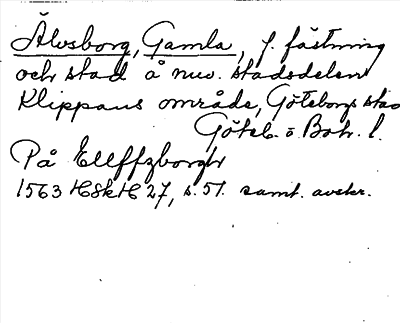 Älvsborg, Gamla, f. fästning
och stad å nuv. stadsdelen
Klippans område, Göteborgs stad
Göteb. o. Boh. l.
På Elleffzborgh
1563 HSkH 27, s. 51. samt. avskr.